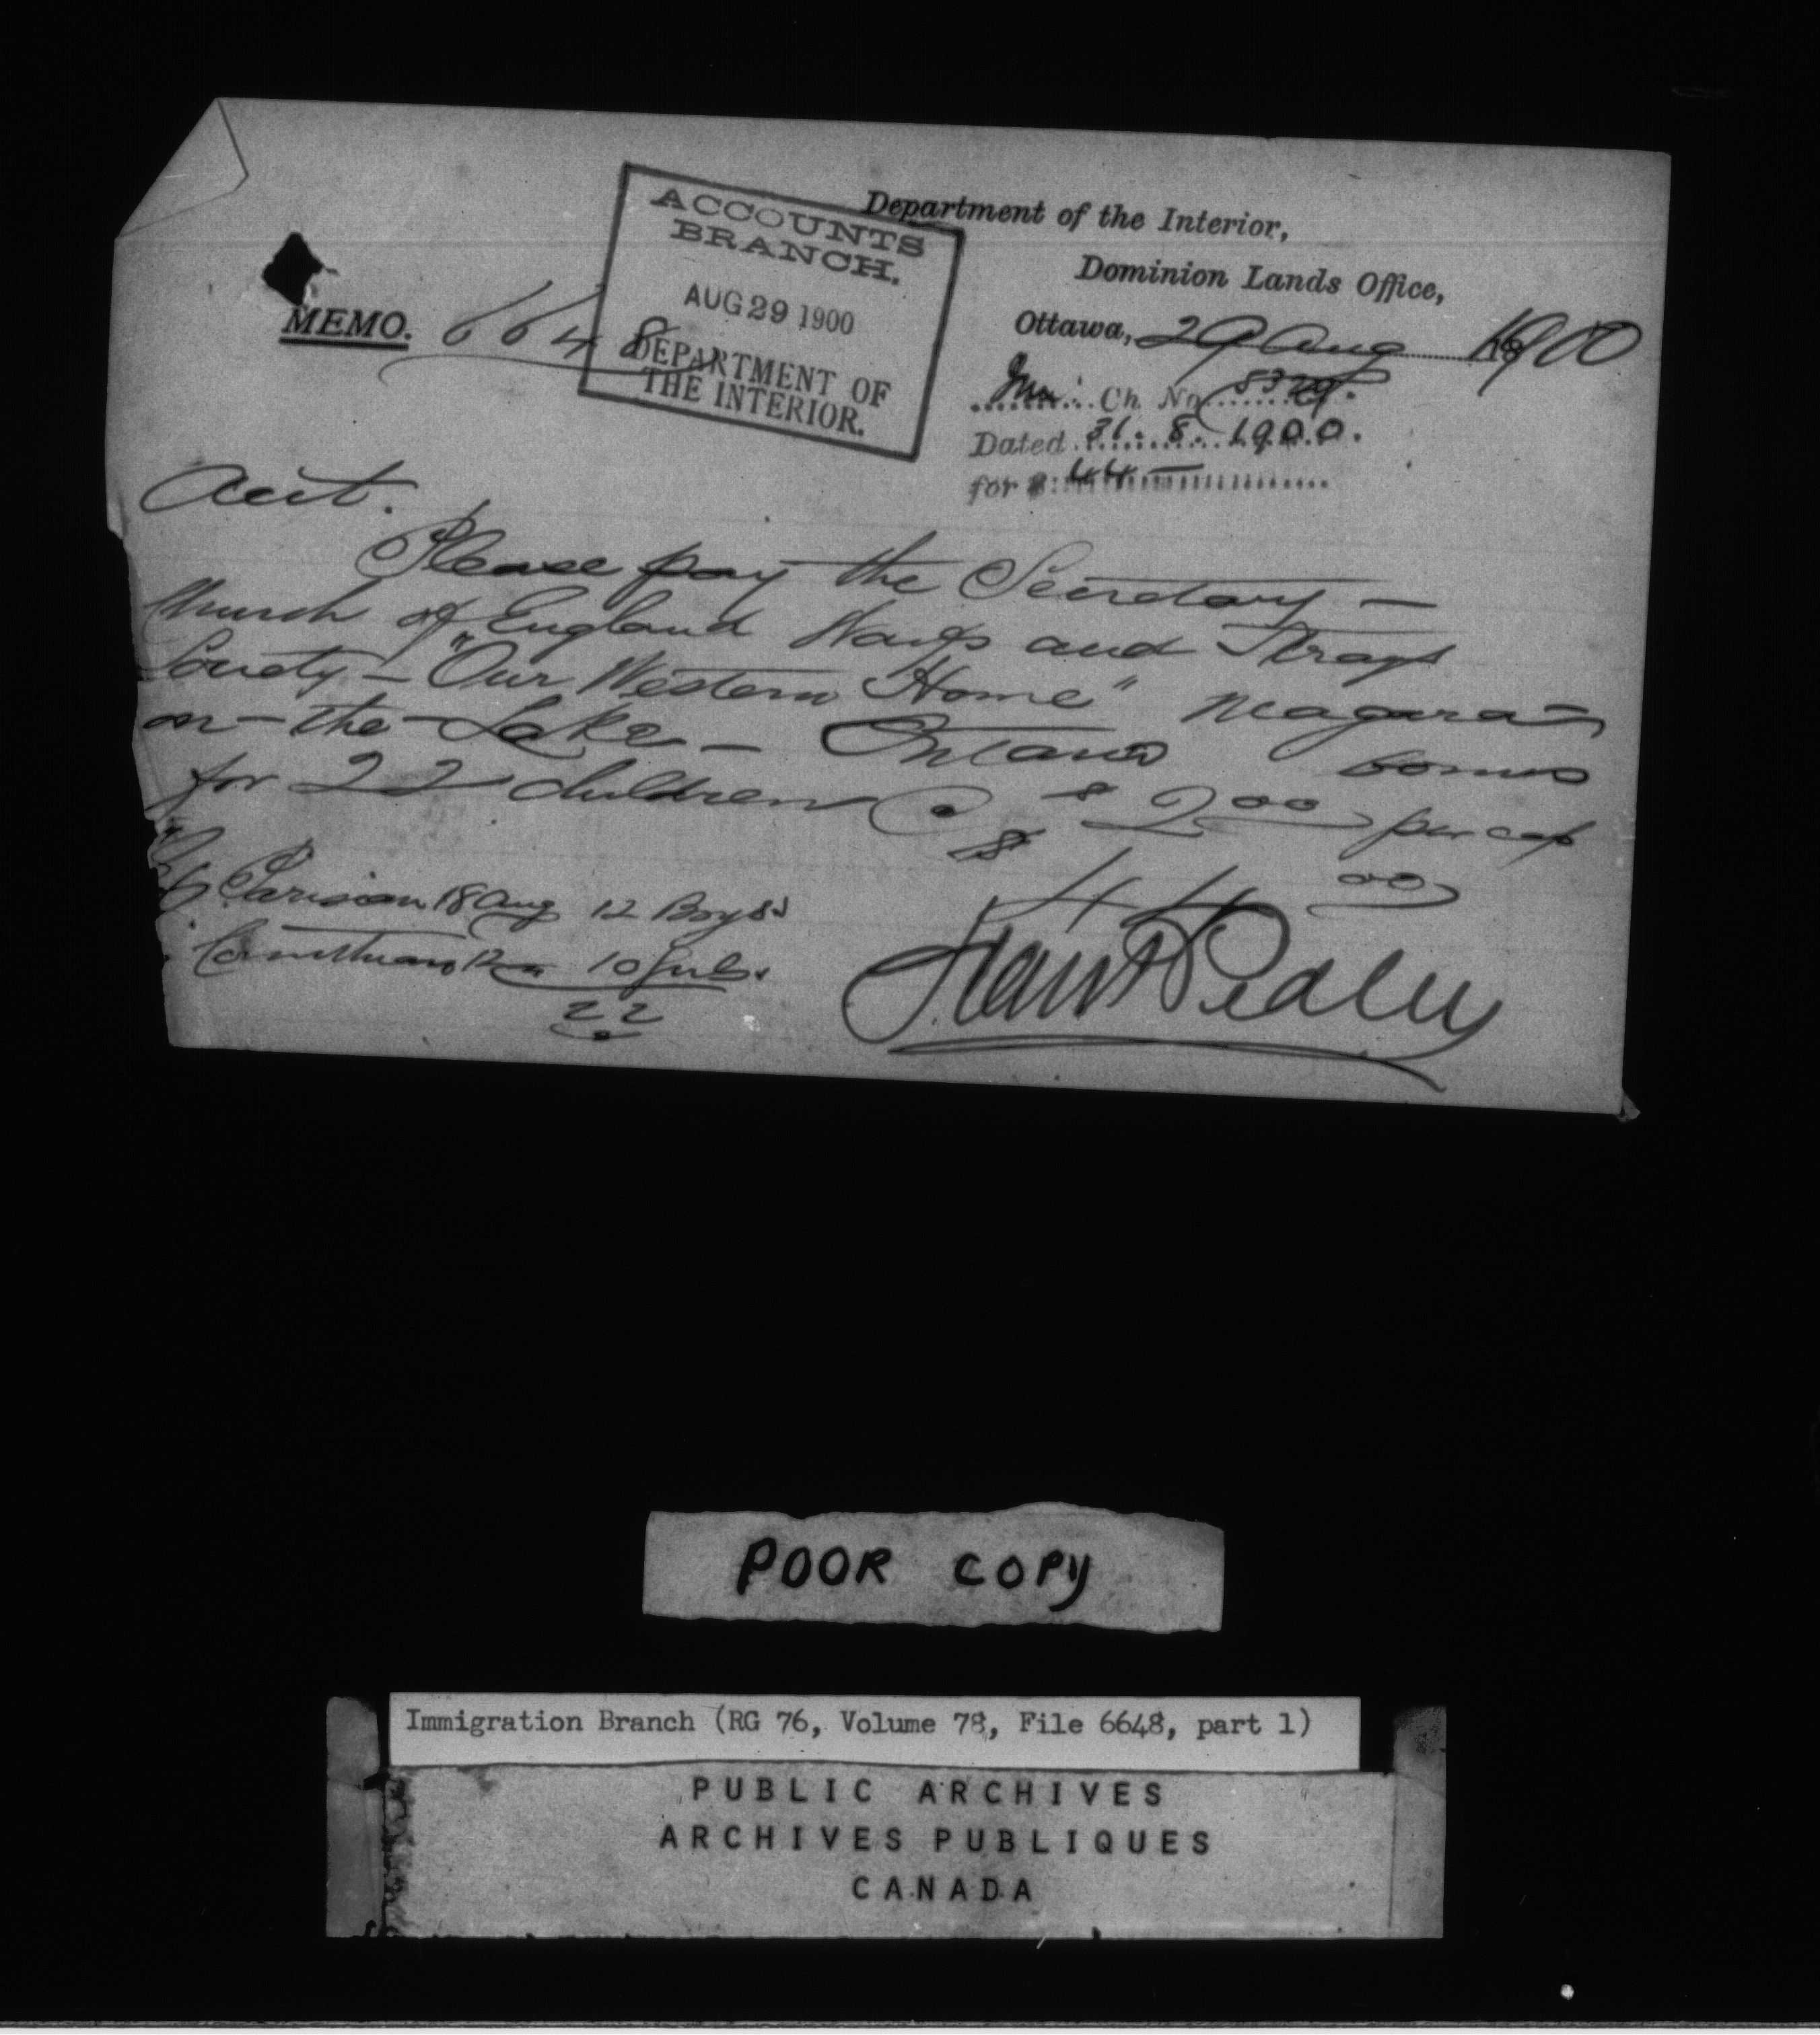 Department of the Interior,
Dominion Lands Office,
Ottawa, 29 Aug 1900
MEMO. 6648
ACCOUNTS
BRANCH.
AUG 29 1900
DEPARTMENT OF
THE INTERIOR.
Ch. No. 8329.
Dated 31. 8. 1900.
for $ 44 —
Acct.
Please pay the Secretary —
Church of England Waifs and Strays
Society — "Our Western Home" Niagara-
on-the-Lake — Ontario bonus
for 22 children @ $2.00 per cap
$44.00
Parisian 18 Aug 12 Boys
Corinthian 12 " 10 Girls
22
Frank Pedley
POOR COPY
Immigration Branch (RG 76, Volume 78, File 6648, part 1)
PUBLIC ARCHIVES
ARCHIVES PUBLIQUES
CANADA